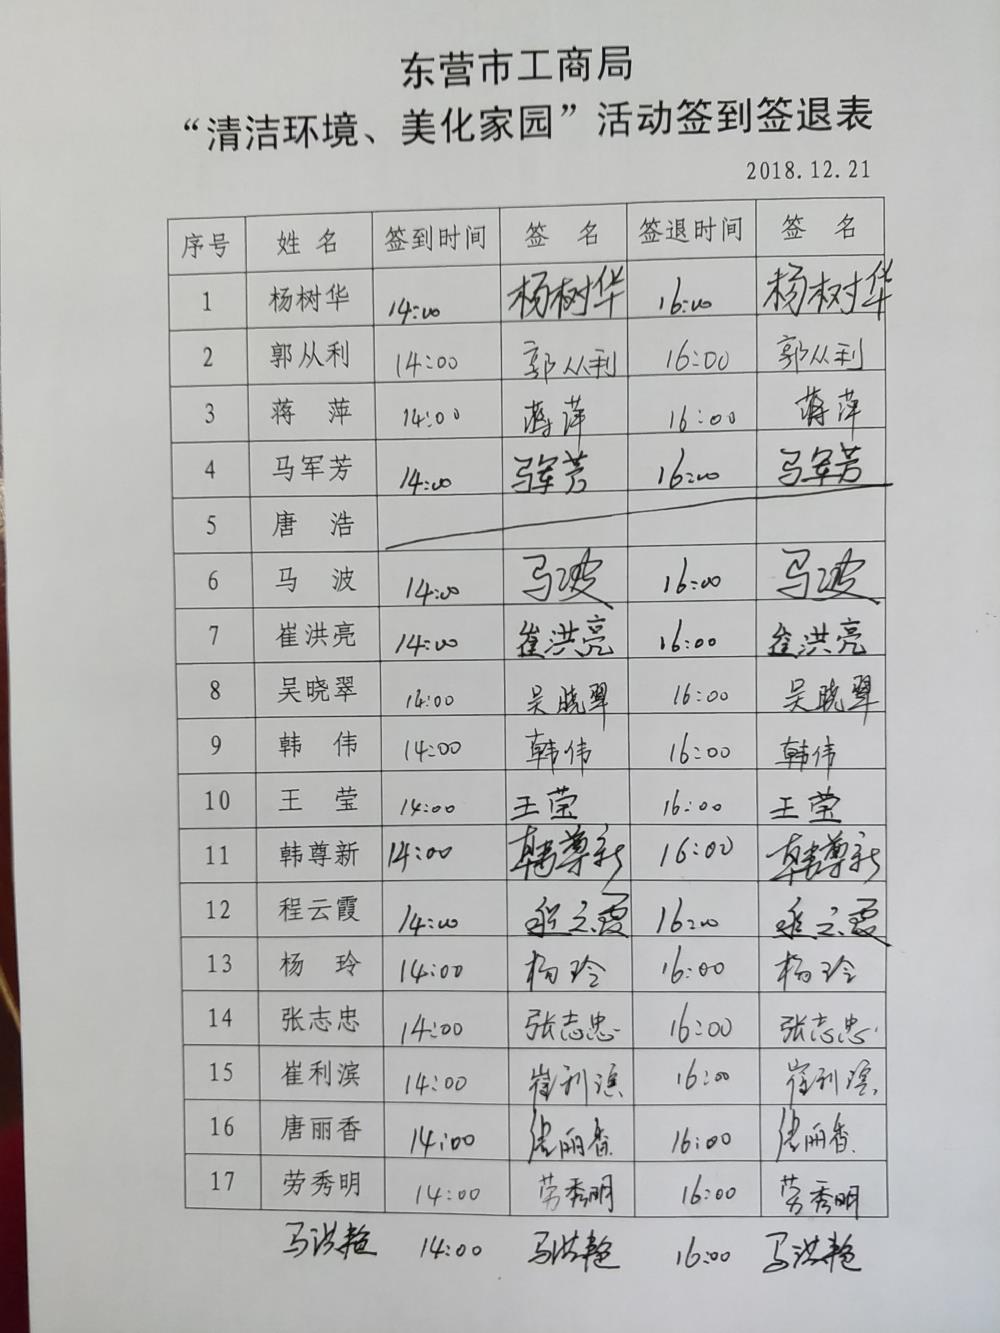 东营市工商局
“清洁环境、美化家园”活动签到签退表
2018.12.21
序号 姓 名 签到时间 签 名 签退时间 签 名
1 杨树华 14:00 杨树华 16:00 杨树华
2 郭从利 14:00 郭从利 16:00 郭从利
3 蒋 萍 14:00 蒋萍 16:00 蒋萍
4 马军芳 14:00 马军芳 16:00 马军芳
5 唐 浩
6 马 波 14:00 马波 16:00 马波
7 崔洪亮 14:00 崔洪亮 16:00 崔洪亮
8 吴晓翠 14:00 吴晓翠 16:00 吴晓翠
9 韩 伟 14:00 韩伟 16:00 韩伟
10 王 莹 14:00 王莹 16:00 王莹
11 韩尊新 14:00 韩尊新 16:00 韩尊新
12 程云霞 14:00 程云霞 16:00 程云霞
13 杨 玲 14:00 杨玲 16:00 杨玲
14 张志忠 14:00 张志忠 16:00 张志忠
15 崔利滨 14:00 崔利滨 16:00 崔利滨
16 唐丽香 14:00 唐丽香 16:00 唐丽香
17 劳秀明 14:00 劳秀明 16:00 劳秀明
马洪艳 14:00 马洪艳 16:00 马洪艳